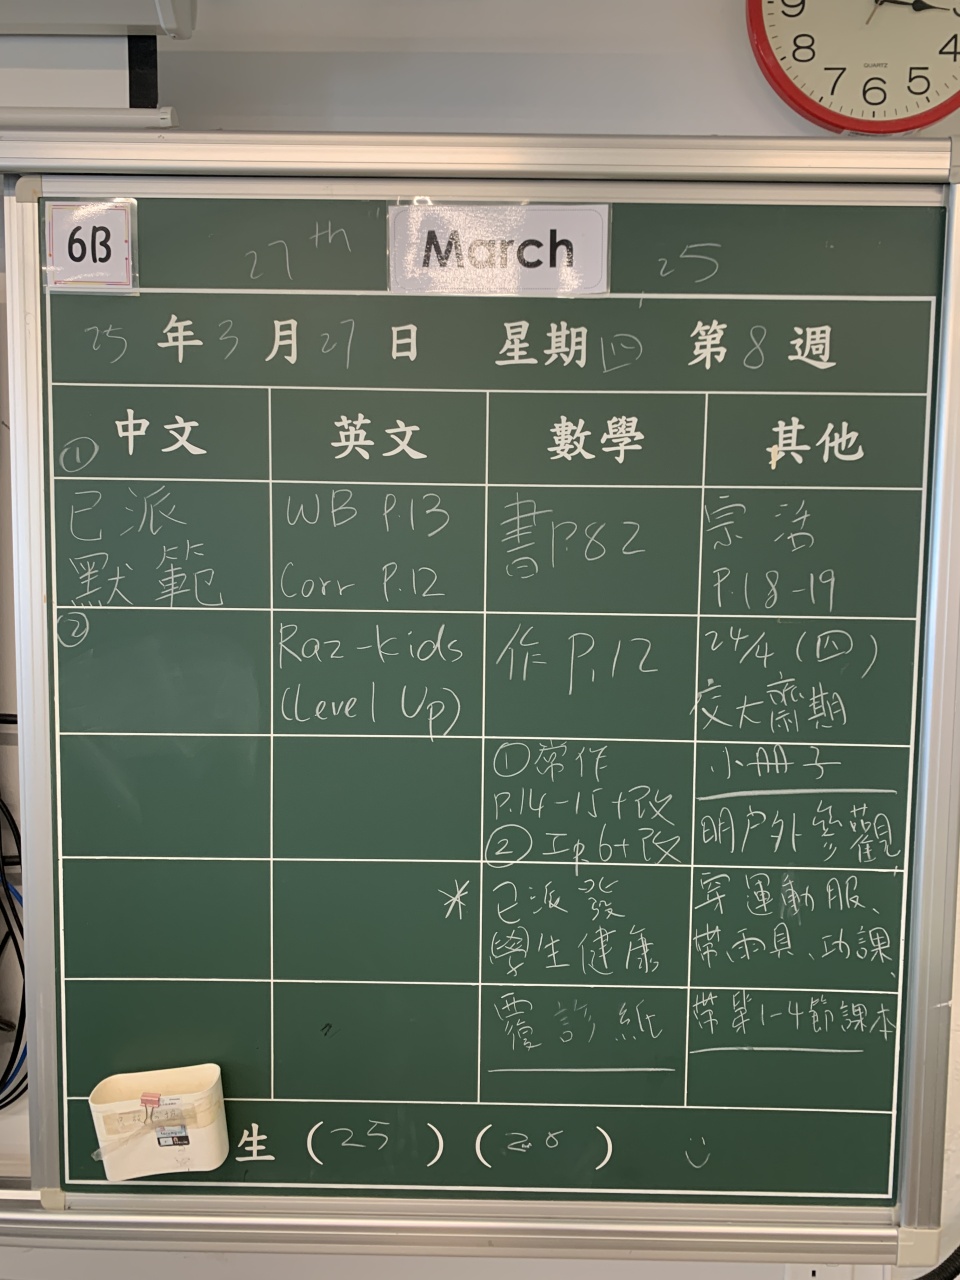 9
8
7
6
5
4
QUARTZ
6B
27th March 25
25年3月27日 星期四 第8週
中文
①
已派
默範
②
英文
WB P.13
Corr P.12
Raz-kids
(Level Up)
數學
書P.82
作P.12
①常作
P.14-15+改
②工p.6+改
*已派發
學生健康
覆診紙
其他
宗活
P.18-19
24/4(四)
交大齋期
小冊子
明戶外參觀,
穿運動服、
帶雨具、功課、
帶第1-4節課本
生 (25) (28)